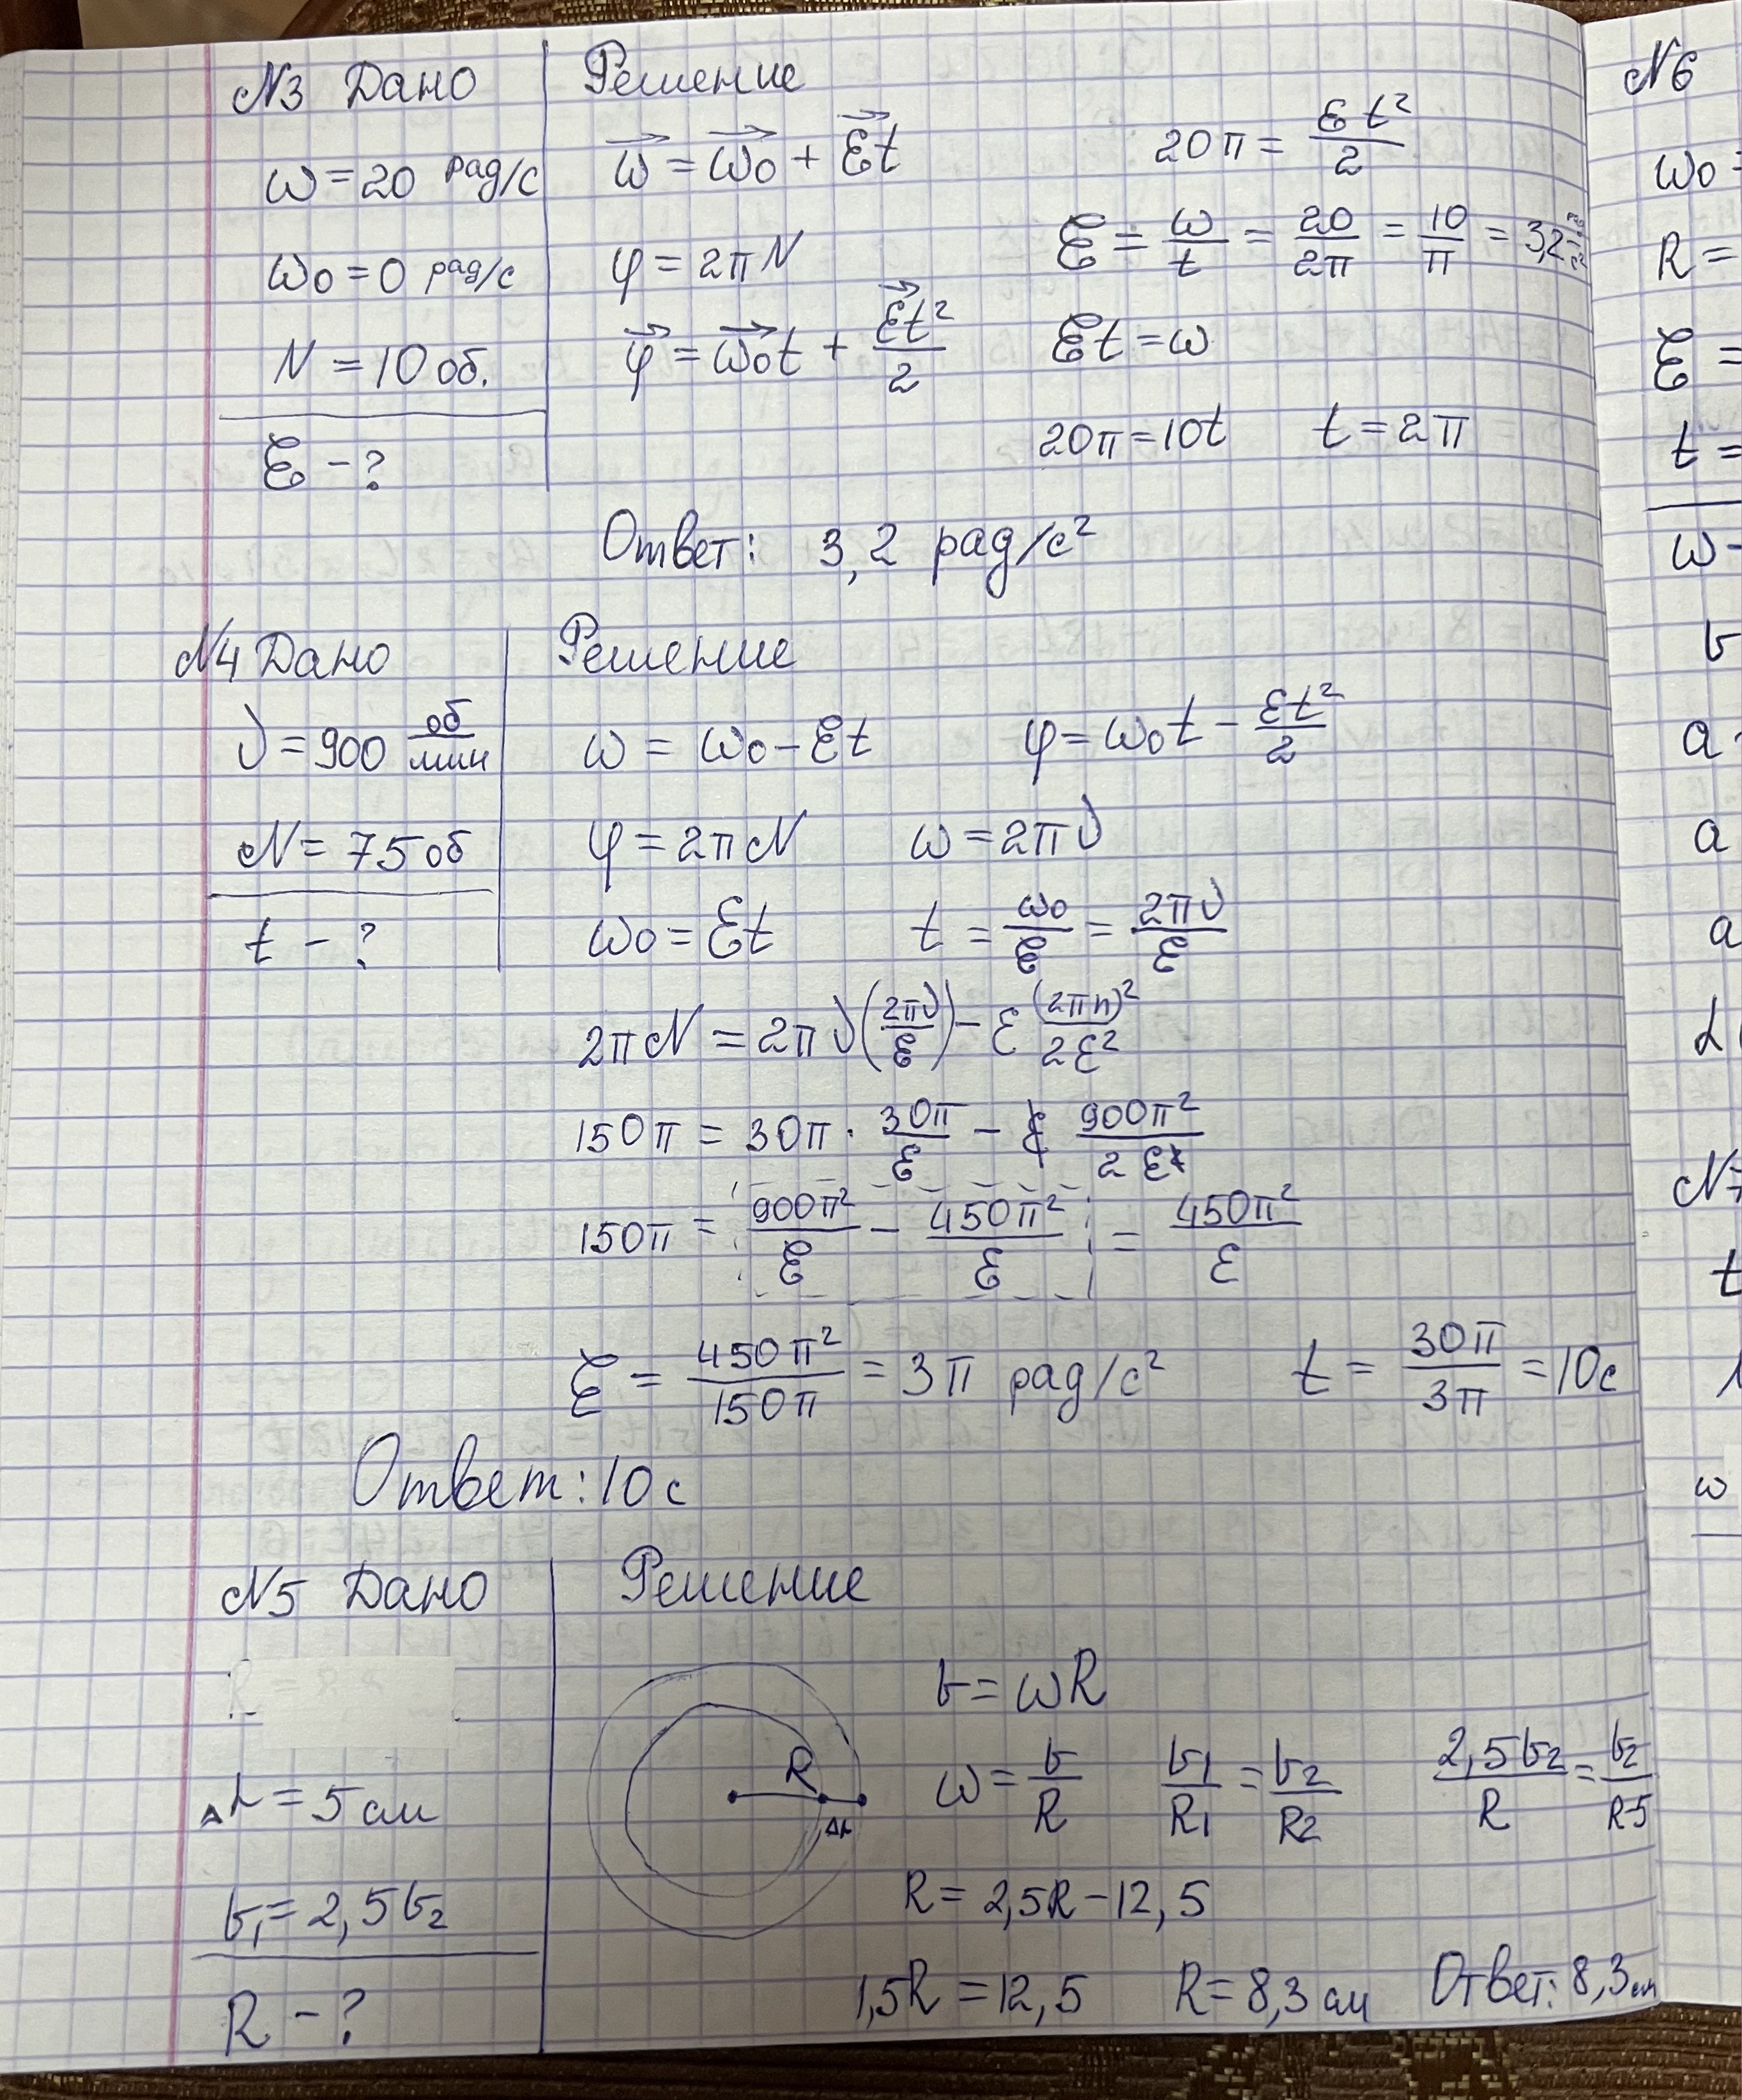 N3 Дано
Решение
ω = 20 рад/с
ω0 = 0 рад/с
N = 10 об.
ε - ?
ω = ω0 + εt
φ = 2πN
φ = ω0t + εt²/2
20π = εt²/2
ε = ω/t = 20/2π = 10/π = 3,2 рад/с²
εt = ω
20π = 10t t = 2π
Ответ: 3,2 рад/с²
N4 Дано
Решение
ν = 900 об/мин
N = 75 об
t - ?
ω = ω0 - εt φ = ω0t - εt²/2
φ = 2πN ω = 2πν
ω0 = εt t = ω0/ε = 2πν/ε
2πN = 2πν(2πν/ε) - ε (2πn)²/2ε²
150π = 30π · 30π/ε - ε 900π²/2ε²
150π = 900π²/ε - 450π²/ε = 450π²/ε
ε = 450π²/150π = 3π рад/с² t = 30π/3π = 10с
Ответ: 10 с
N5 Дано
Решение
Δr = 5 см
v1 = 2,5v2
R - ?
R
Δr
v = ωR
ω = v/R v1/R1 = v2/R2 2,5v2/R = v2/R-5
R = 2,5R - 12,5
1,5R = 12,5 R = 8,3 см Ответ: 8,3 см
N6
ω0 =
R =
ε =
t =
ω -
v
a
a
a
t
ω